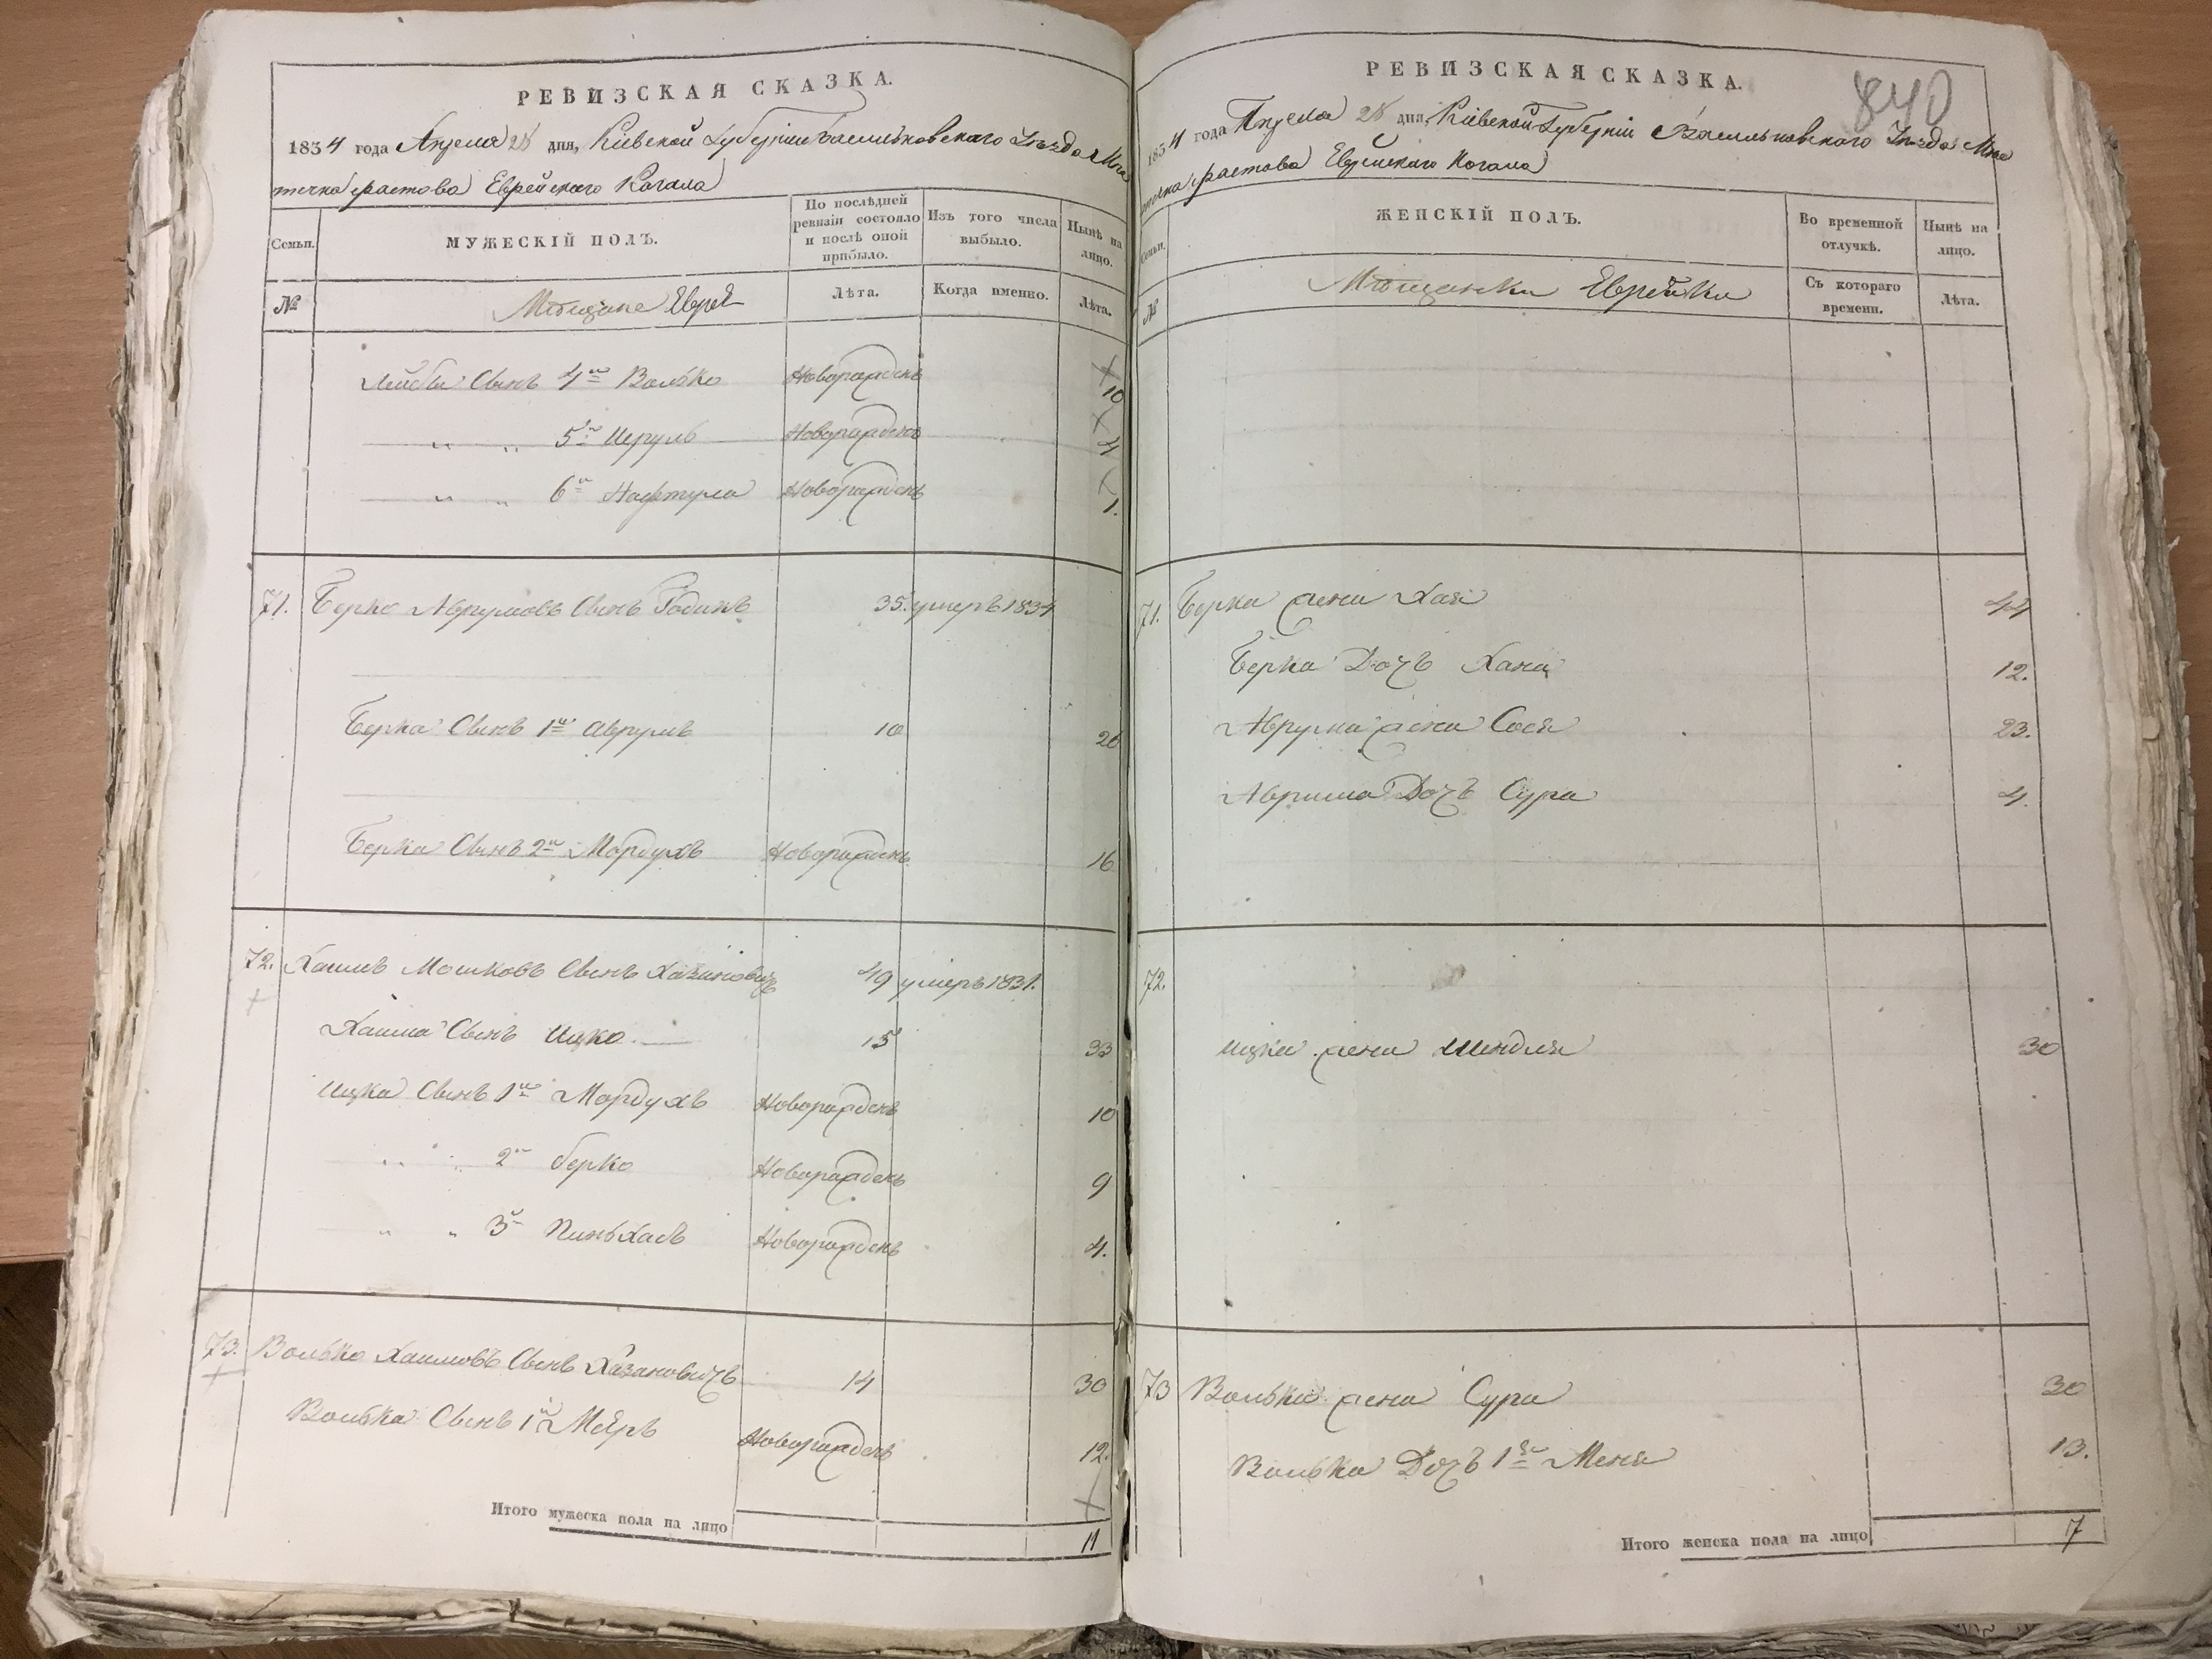 РЕВИЗСКАЯ СКАЗКА.
1834 года Апреля 28 дня, Кіевской Губерніи Васильковскаго Уѣзда Мѣс
течка Фастова Еврейскаго Кагала
Семьи.
МУЖЕСКІЙ ПОЛЪ.
По послѣдней ревизіи состояло и послѣ оной прибыло.
Изъ того числа выбыло.
Нынѣ на лицо.
№
Мѣщане Евреи
Лѣта.
Когда именно.
Лѣта.
Лейбы Сынъ 4й Волько Новорожденъ 10
" " 5й Исруль Новорожденъ 4
" " 6й Нафтула Новорожденъ 1.
71. Берко Аврумовъ Сынъ Родинъ 35. умеръ 1834
Берка Сынъ 1й Аврумъ 10 26
Берка Сынъ 2й Мордухъ Новорожденъ 16
72. Хаимъ Мошковъ Сынъ Хазановичъ 49 умеръ 1831.
Хаима Сынъ Ицко 15 33
Ицка Сынъ 1й Мордухъ Новорожденъ 10
" " 2й Берко Новорожденъ 9
" " 3й Пиньхасъ Новорожденъ 4.
73. Волько Хаимовъ Сынъ Хазановичъ 14 30
Волька Сынъ 1й Меѣръ Новорожденъ 12.
Итого мужеска пола на лицо 11
840
РЕВИЗСКАЯ СКАЗКА.
1834 года Апреля 28 дня, Кіевской Губерніи Васильковскаго Уѣзда Мѣс
течка Фастова Еврейскаго Кагала
Семьи.
ЖЕНСКІЙ ПОЛЪ.
Во временной отлучкѣ.
Нынѣ на лицо.
№
Мѣщанки Еврейки
Съ котораго времени.
Лѣта.
71. Берка жена Хая 44
Берка Дочъ Хана 12.
Аврума жена Сося 23.
Аврума Дочъ Сура 4.
72.
Ицка жена Шендля 30
73 Волька жена Сура 30
Волька Дочъ 1я Меня 13.
Итого женска пола на лицо 7